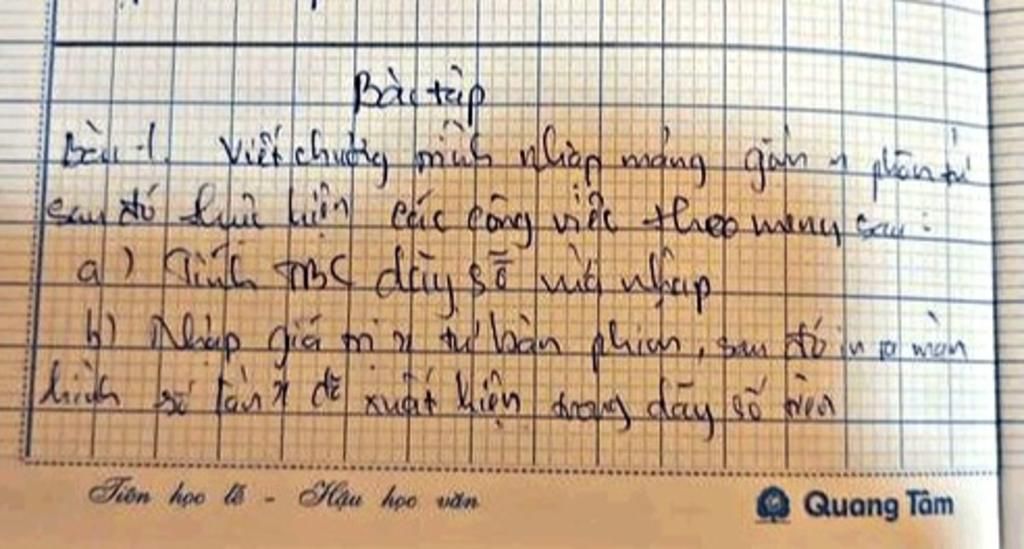 Bài tập
Bài 1. Viết chương trình nhập mảng gồm n phần tử
sau đó thực hiện các công việc theo menu sau:
a) Tính TBC dãy số vừa nhập
b) Nhập giá trị x từ bàn phím, sau đó in ra màn
hình số lần x xuất hiện trong dãy số trên
Tiên học lễ - Hậu học văn
Quang Tâm